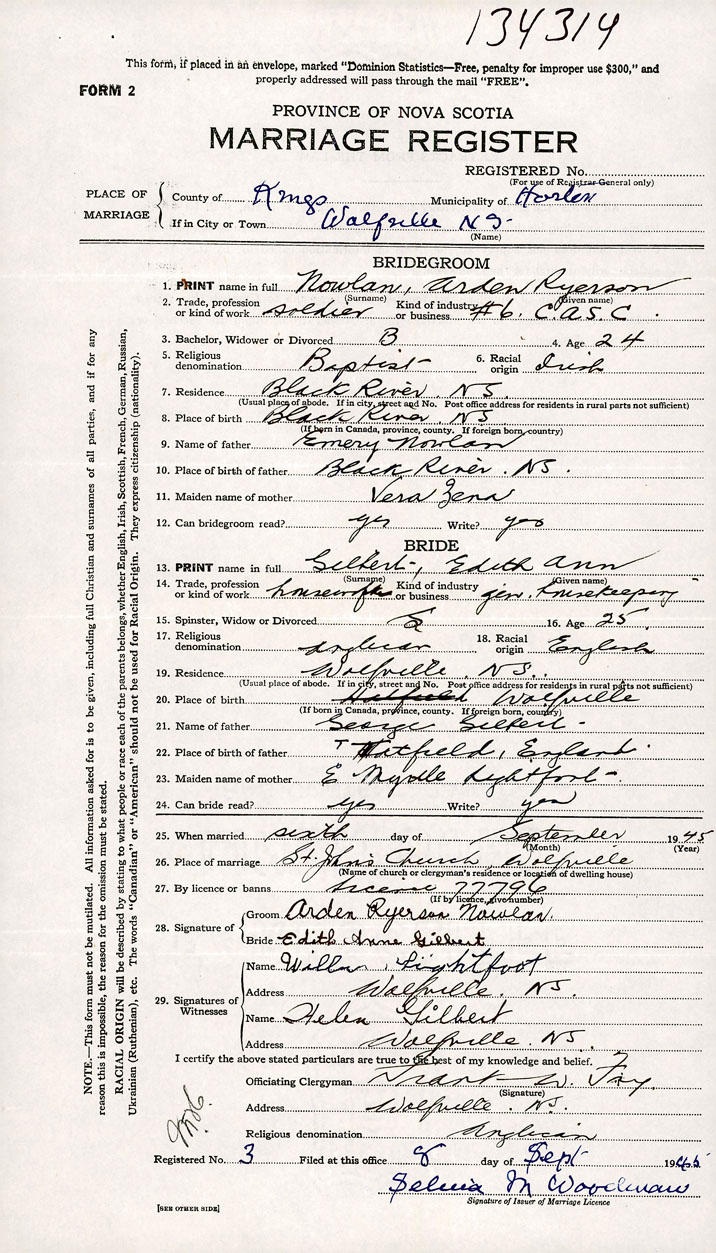 134314
This form, if placed in an envelope, marked "Dominion Statistics—Free, penalty for improper use $300," and
properly addressed will pass through the mail "FREE".
FORM 2
PROVINCE OF NOVA SCOTIA
MARRIAGE REGISTER
REGISTERED No.
(For use of Registrar-General only)
PLACE OF MARRIAGE
County of Kings Municipality of Horton
If in City or Town Wolfville NS-
(Name)
BRIDEGROOM
1. PRINT name in full Nowlan, Arden Ryerson
(Surname) (Given name)
2. Trade, profession or kind of work soldier Kind of industry or business #6. C.A.S.C.
3. Bachelor, Widower or Divorced B 4. Age 24
5. Religious denomination Baptist 6. Racial origin Irish
7. Residence Black River. NS.
(Usual place of abode. If in city, street and No. Post office address for residents in rural parts not sufficient)
8. Place of birth Black River, NS
(If born in Canada, province, county. If foreign born, country)
9. Name of father Emery Nowlan
10. Place of birth of father Black River. NS.
11. Maiden name of mother Vera
12. Can bridegroom read? yes Write? yes
BRIDE
13. PRINT name in full Gilbert, Edith Ann
(Surname) (Given name)
14. Trade, profession or kind of work housework Kind of industry or business gen. housekeeping
15. Spinster, Widow or Divorced S 16. Age 25
17. Religious denomination Anglican 18. Racial origin English
19. Residence Wolfville, NS.
(Usual place of abode. If in city, street and No. Post office address for residents in rural parts not sufficient)
20. Place of birth Wolfville
(If born in Canada, province, county. If foreign born, country)
21. Name of father George Gilbert-
22. Place of birth of father Hatfield, England.
23. Maiden name of mother E Myrtle Lightfoot-
24. Can bride read? yes Write? yes
25. When married sixth day of September 1945
(Month) (Year)
26. Place of marriage St. John's Church Wolfville
(Name of church or clergyman's residence or location of dwelling house)
27. By licence or banns licence 77796
(If by licence, give number)
28. Signature of
Groom Arden Ryerson Nowlan.
Bride Edith Anne Gilbert
29. Signatures of Witnesses
Name Willa Lightfoot
Address Wolfville. NS.
Name Helen Gilbert
Address Wolfville. NS.
I certify the above stated particulars are true to the best of my knowledge and belief.
Officiating Clergyman Frank W.
(Signature)
Address Wolfville. NS.
Religious denomination Anglican
Registered No. 3 Filed at this office 8 day of Sept 1945
Selina M Woodman
Signature of Issuer of Marriage Licence
[SEE OTHER SIDE]
NOTE.—This form must not be mutilated. All information asked for is to be given, including full Christian and surnames of all parties, and if for any
reason this is impossible, the reason for the omission must be stated.
RACIAL ORIGIN will be described by stating to what people or race each of the parents belongs, whether English, Irish, Scottish, French, German, Russian,
Ukrainian (Ruthenian), etc. The words "Canadian" or "American" should not be used for Racial Origin. They express citizenship (nationality).